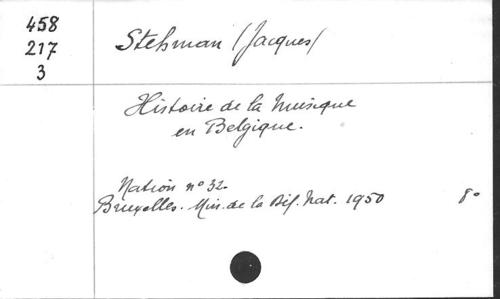 458
217
3
Stehman (Jacques)
Histoire de la Musique
en Belgique.
Nation n° 32.
Bruxelles. Min. de la Déf. Nat. 1950 8°